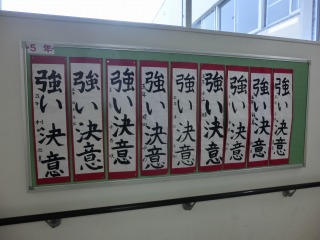 5年
強い決意
強い決意
強い決意
強い決意
強い決意
強い決意
強い決意
強い決意
強い決意